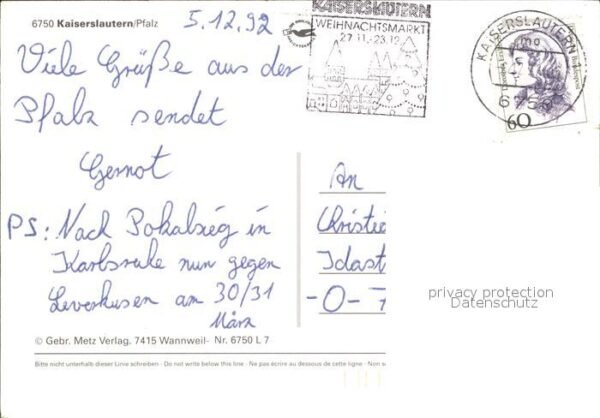 6750 Kaiserslautern/Pfalz
5.12.92
KAISERSLAUTERN
WEIHNACHTSMARKT
27.11.-23.12.
KAISERSLAUTERN
60
Viele Grüße aus der
Pfalz sendet
Gernot
PS: Nach Pokalsieg in
Karlsruhe nun gegen
Leverkusen am 30/31
März
An
Idast
-O-7
privacy protection
Datenschutz
© Gebr. Metz Verlag. 7415 Wannweil- Nr. 6750 L 7
Bitte nicht unterhalb dieser Linie schreiben - Do not write below this line - Ne pas écrire au dessous de cette ligne - Non s